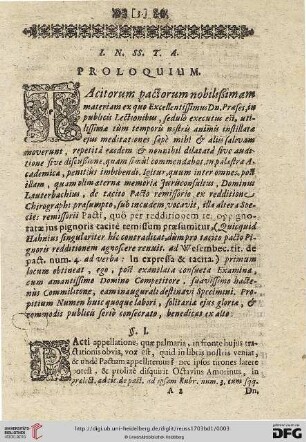 [3]
I. N. SS. T. A.
PROLOQUIUM.
TAcitorum pactorum nobilissimam
materiam ex quo Excellentissimus Dn. Præses, in
publicis Lectionibus, sedulo executus est, uti-
lissima tùm temporis nostris animis instillata
ejus meditationes sæpè mihi & aliis salivam
moverunt, repetita easdem ut nonnihil dilatata sive audi-
tione sive discussione, quam simul commendabat, in palæstra A-
cademica, penitius imbibendi. Igitur, quum inter omnes, post
illam, quam olim æterna memoriæ Jurisconsultus Dominus
Lauterbachius, de tacito Pacto remissorio ex redditione
Chirographi præsumpto, sub incudem vocavit, illa altera Spe-
cie remissorii Pacti, quo per redditionem rei oppigno-
ratæ jus pignoris tacitè remissum præsumitur (Quicquid
Hahnius singulariter hîc contradicat, dùm pro tacito Pi-
gnoris redditionem agnoscere renuit. ad Wesembec. tit. de
pact. num. 4. ad verba: In expressa & tacita.) primum
locum obtineat, ego, post exantlata consueta Examina,
cum amantissimo Domino Competitore, suavissimo hacte-
nus Commilitone, eam inaugurali destinavi Specimini. Pro-
pitium Numen huic quoque labori, solitaria ejus gloriæ, &
commodis publicis seriò consecrato, benedicat ex alto.
§. I.
PActi appellatione, quæ palmaria, in fronte hujus tra-
ctationis obvia, vox est, quid in libris nostris veniat,
& unde Pactum appellitetur? nec ipsos tirones latere
potest, & prolixè disquirit Octavius Amorinus, in
prælect. ad tit. de pact. ad ipsam Rubr. num. 3. cum sqq.
A 2
Du,
http://digi.ub.uni-heidelberg.de/diglit/reiss1703b01/0003
© Universitätsbibliothek Heidelberg